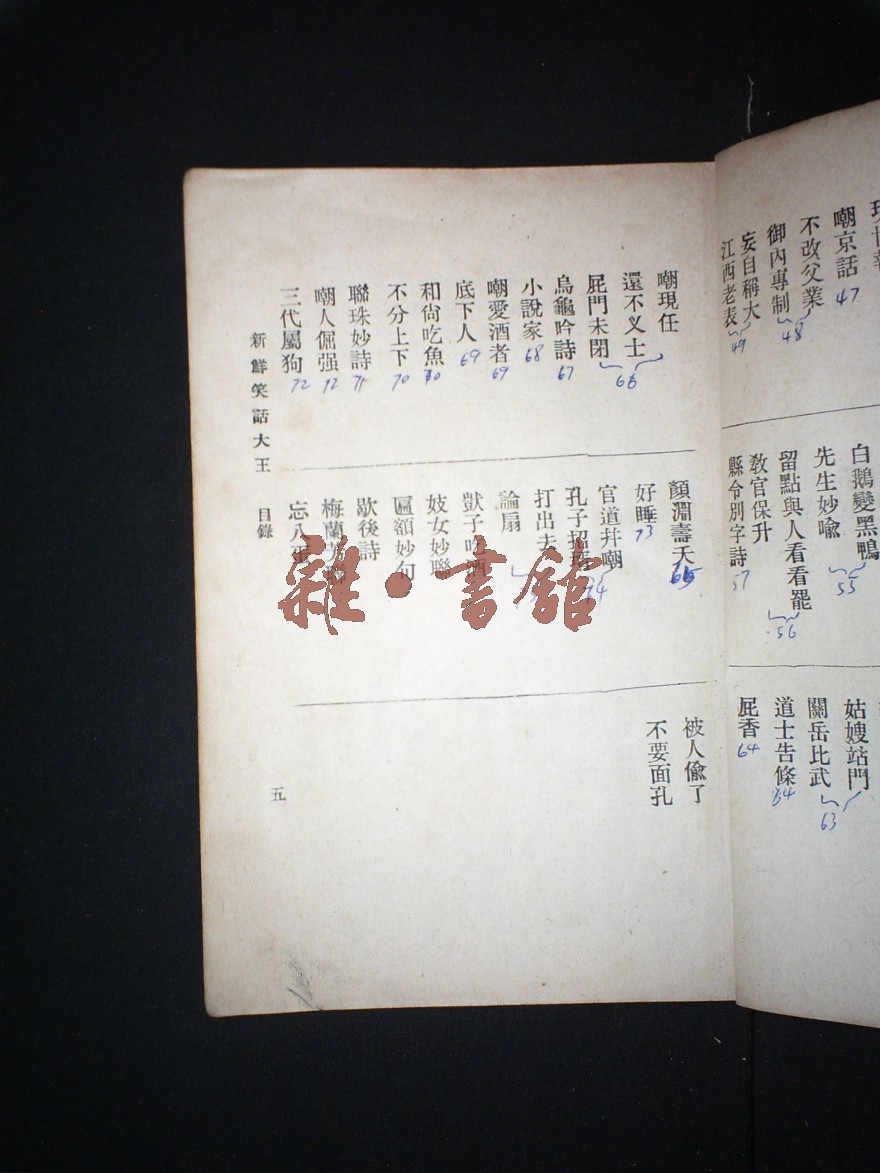 嘲京話
47
不改父業
御內專制
48
妄自稱大
江西老表
49
白鵝變黑鴨
先生妙喻
55
留點與人看看罷
教官保升
56
縣令別字詩
57
姑嫂站門
關岳比武
63
道士告條
64
屁香
64
嘲現任
還不义士
屁門未閉
66
烏龜吟詩
67
小說家
68
嘲愛酒者
69
底下人
69
和尙吃魚
70
不分上下
70
聯珠妙詩
71
嘲人倔强
72
三代屬狗
72
顏淵壽夭
65
好睡
73
官道幷嘲
74
打出去
論扇
獃子吃酒
妓女妙聯
匾額妙句
歇後詩
梅蘭芳聯
忘八蛋
被人偸了
不要面孔
新鮮笑話大王 目錄
五
雜·書館